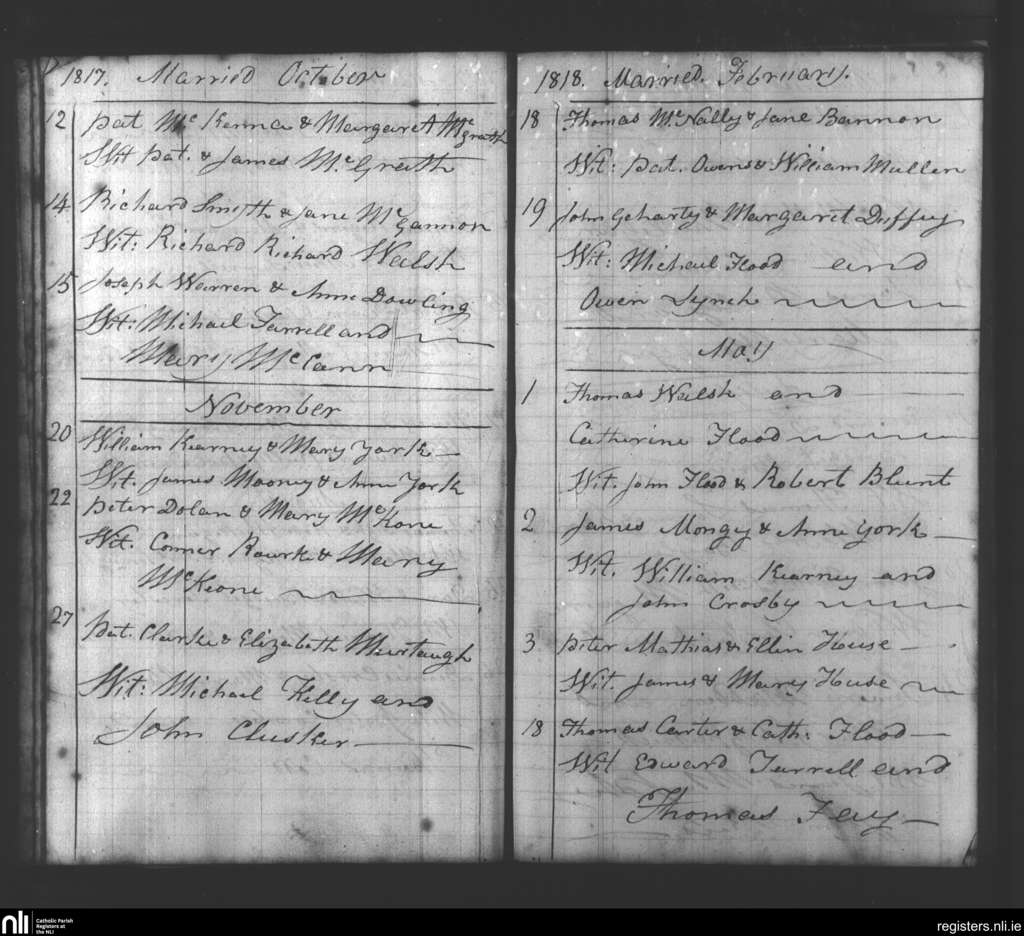 1817. Married October
12 Pat Mc Kenna & Margaret Mc Grath
Wit Pat. & James Mc Grath
14 Richard Smyth & Jane Mc Gannon
Wit: Richard Richard Walsh
15 Joseph Warren & Anne Dowling
Wit: Michael Farrell and
Mary McCann
November
20 William Kearney & Mary York
Wit. James Mooney & Anne York
22 Peter Dolan & Mary McKone
Wit. Conner Rourke & Mary
McKeone
27 Pat. Clarke & Elizabeth Murtaugh
Wit: Michael Kelly and
John Clusker
1818. Married. February.
18 Thomas Mc Nally & Jane Bannon
Wit: Pat. Owens & William Mullen
19 John Geharty & Margaret Duffey
Wit: Michael Flood and
Owen Lynch
May
1 Thomas Walsh and
Catherine Flood
Wit. John Flood & Robert Blunt
2 James Mongy & Anne York
Wit. William Kearney and
John Crosby
3 Peter Mathias & Ellin House
Wit. James & Mary House
18 Thomas Carter & Cath: Flood
Wit Edward Farrell and
Thomas Fay
nli Catholic Parish
Registers at
the NLI
registers.nli.ie